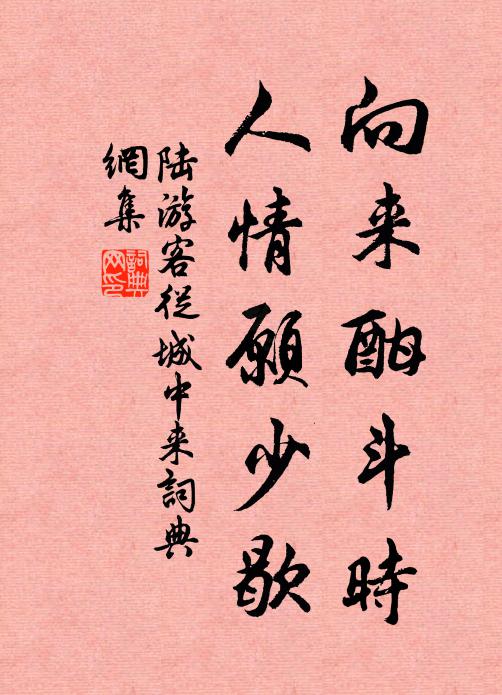 向来酣斗時
人情願少歇
陆游客從城中来詞典
網集
詞典
网印